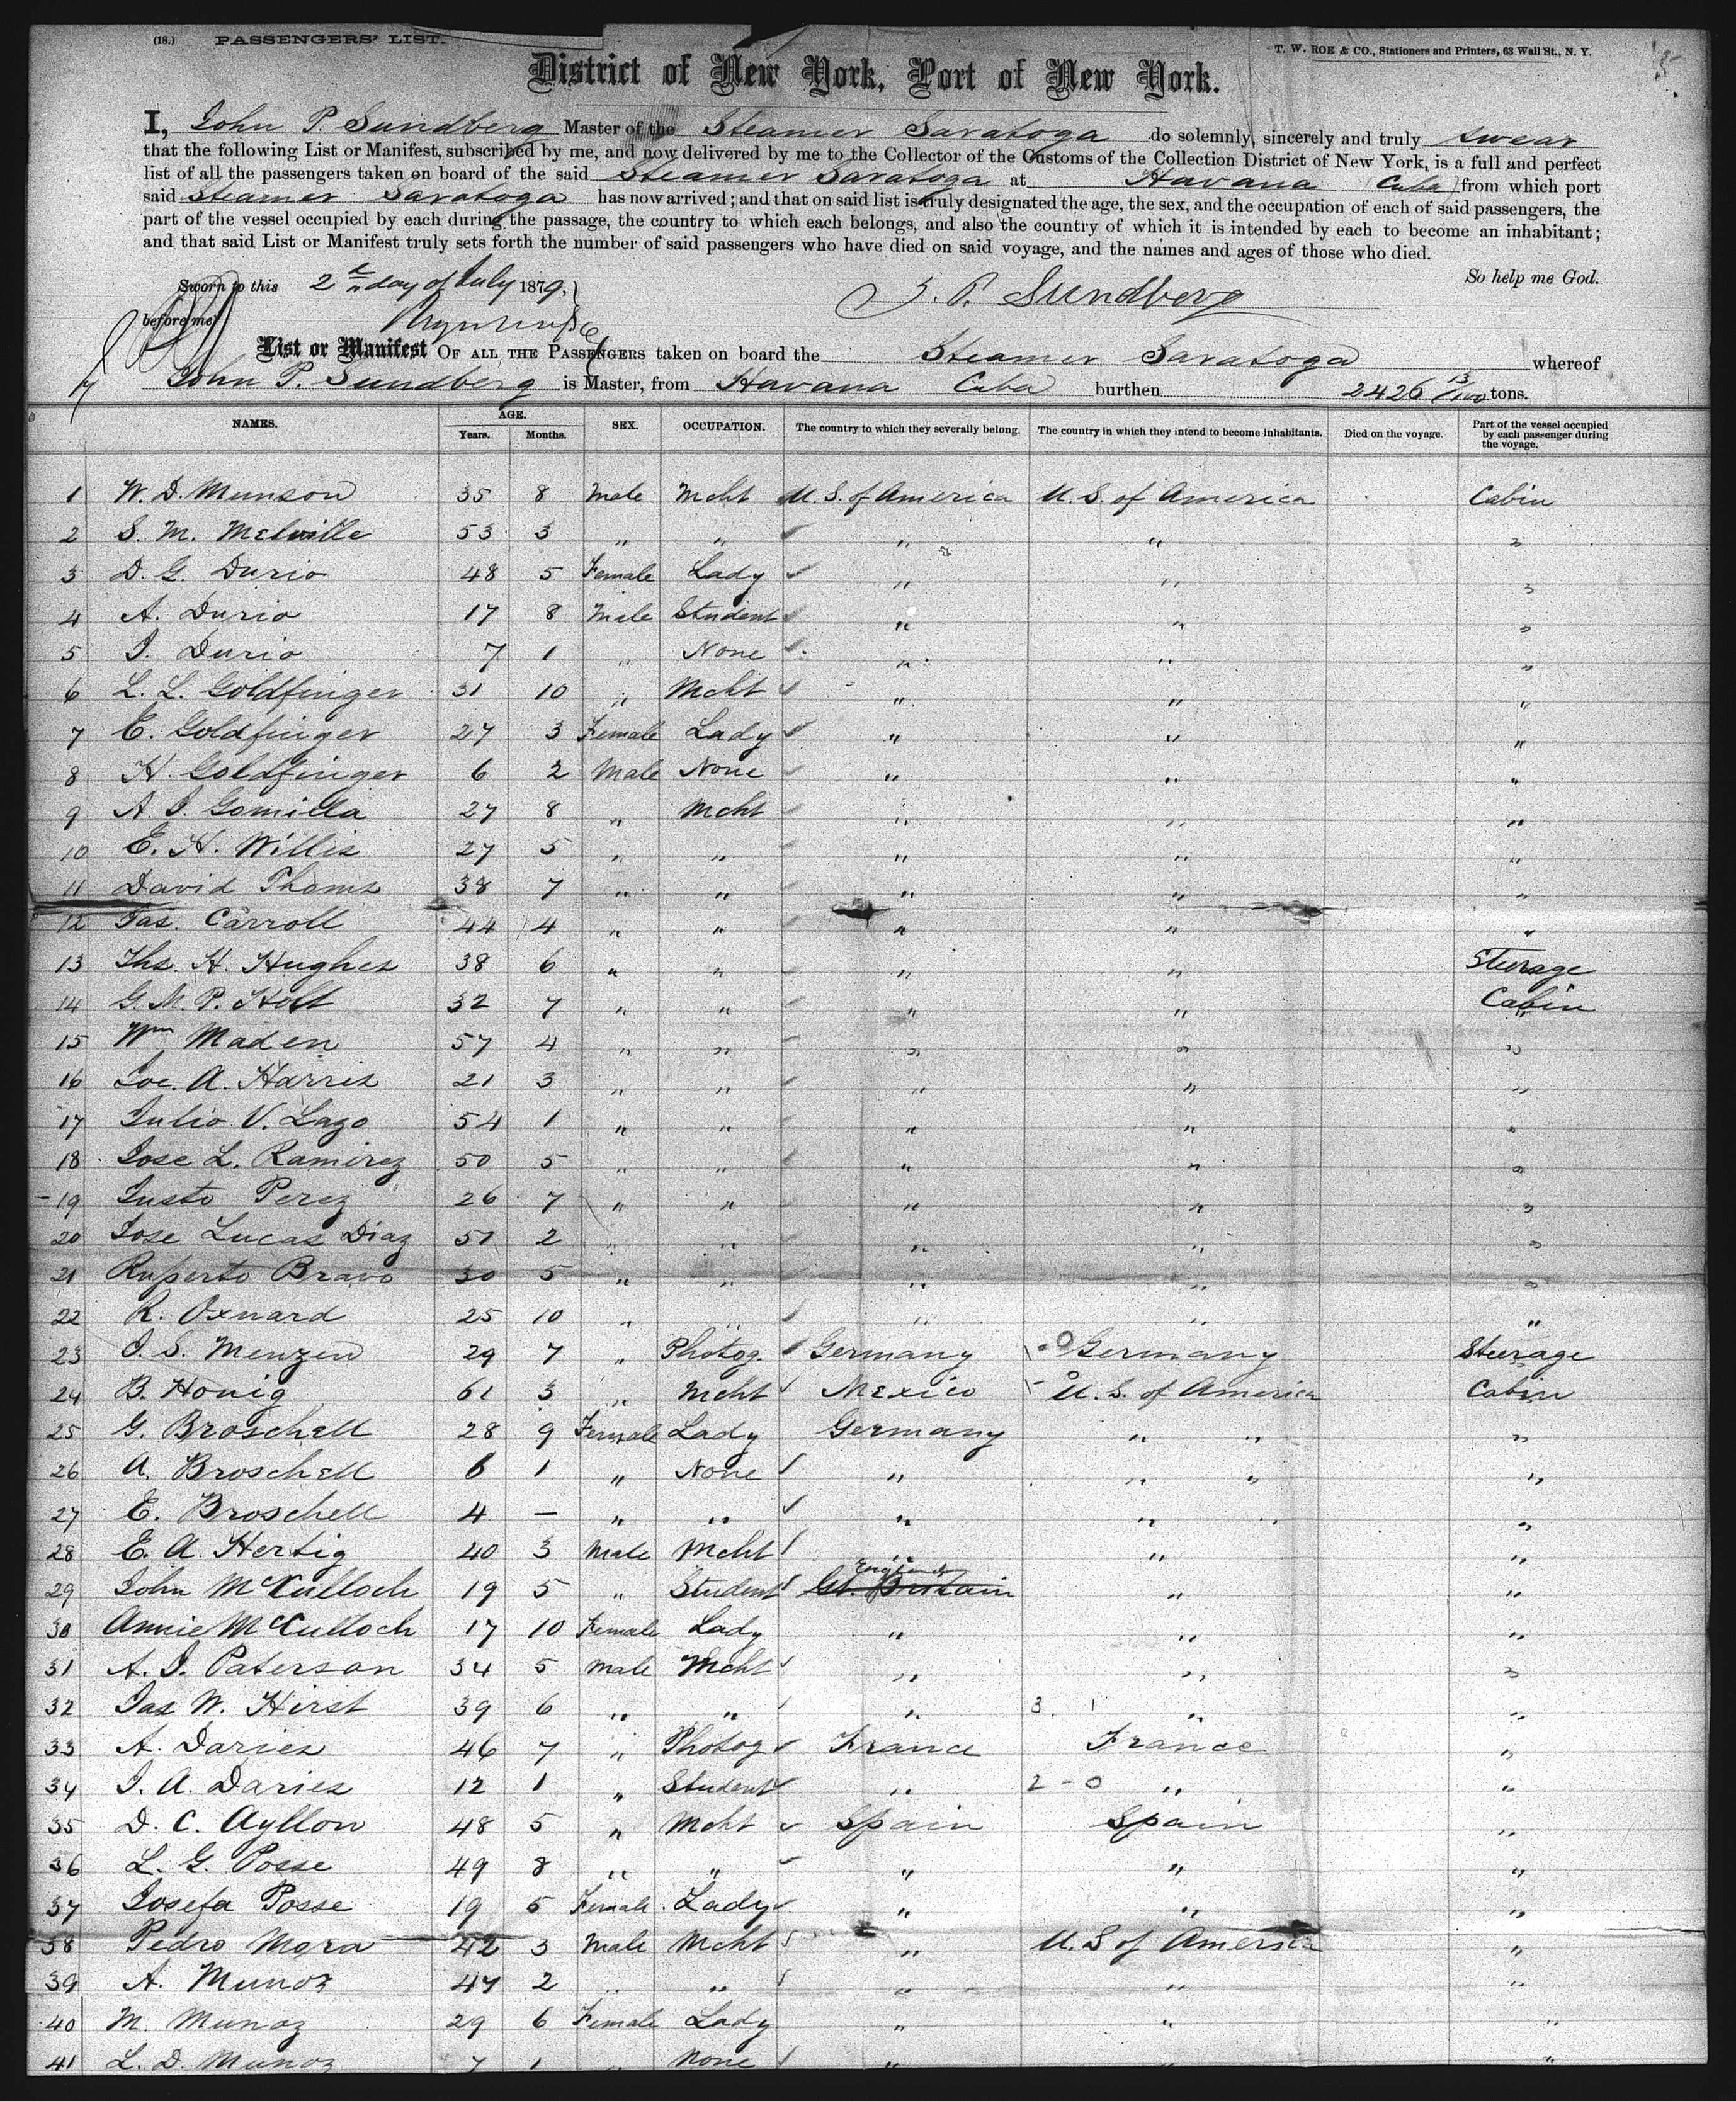 (18.) PASSENGERS' LIST.
T. W. ROE & CO., Stationers and Printers, 63 Wall St., N. Y.
District of New York, Port of New York.
I, John P. Sundberg Master of the Steamer Saratoga do solemnly, sincerely and truly swear
that the following List or Manifest, subscribed by me, and now delivered by me to the Collector of the Customs of the Collection District of New York, is a full and perfect
list of all the passengers taken on board of the said Steamer Saratoga at Havana (Cuba) from which port
said Steamer Saratoga has now arrived; and that on said list is truly designated the age, the sex, and the occupation of each of said passengers, the
part of the vessel occupied by each during the passage, the country to which each belongs, and also the country of which it is intended by each to become an inhabitant;
and that said List or Manifest truly sets forth the number of said passengers who have died on said voyage, and the names and ages of those who died.
So help me God.
Sworn to this 2 day of July 1879,
J. P. Sundberg
before me
List or Manifest OF ALL THE PASSENGERS taken on board the Steamer Saratoga whereof
John P. Sundberg is Master, from Havana Cuba burthen 2426 13/100 tons.
NAMES. AGE. Years. Months. SEX. OCCUPATION. The country to which they severally belong. The country in which they intend to become inhabitants. Died on the voyage. Part of the vessel occupied by each passenger during the voyage.
1 W. D. Munson 35 8 Male Mcht U. S. of America U. S. of America Cabin
2 S. M. Melville 53 3 " " " " "
3 D. G. Durio 48 5 Female Lady " " "
4 A. Durio 17 8 Male Student " " "
5 J. Durio 7 1 " None " " "
6 L. L. Goldfinger 31 10 " Mcht " " "
7 E. Goldfinger 27 3 Female Lady " " "
8 H. Goldfinger 6 2 Male None " " "
9 A. J. Gomilla 27 8 " Mcht " " "
10 E. H. Willis 27 5 " " " " "
11 David Thoms 38 7 " " " " "
12 Jas. Carroll 44 4 " " " " "
13 Ths. H. Hughes 38 6 " " " " Steerage
14 G. M. P. Holt 32 7 " " " " Cabin
15 Wm Maden 57 4 " " " " "
16 Joe. A. Harris 21 3 " " " " "
17 Julio V. Lazo 54 1 " " " " "
18 Jose L. Ramirez 50 5 " " " " "
19 Justo Perez 26 7 " " " " "
20 Jose Lucas Diaz 51 2 " " " " "
21 Ruperto Bravo 30 5 " " " " "
22 R. Oxnard 25 10 " " " " "
23 J. S. Menzen 29 7 " Photog. Germany Germany Steerage
24 B. Honig 61 3 " Mcht Mexico U. S. of America Cabin
25 G. Broschell 28 9 Female Lady Germany " " "
26 A. Broschell 6 1 " None " " " "
27 E. Broschell 4 — " " " " " "
28 E. A. Hertig 40 3 Male Mcht " " "
29 John McCulloch 19 5 " Student Gt. Britain England " "
30 Annie McCulloch 17 10 Female Lady " " "
31 A. J. Paterson 34 5 Male Mcht " " "
32 Jas W. Hirst 39 6 " " " 3. 1 " "
33 A. Daries 46 7 " Photog France France "
34 J. A. Daries 12 1 " Student " 2 - 0 " "
35 D. C. Ayllon 48 5 " Mcht Spain Spain "
36 L. G. Posse 49 8 " " " " "
37 Josefa Posse 19 5 Female Lady " " "
38 Pedro Mora 42 3 Male Mcht " U. S of America "
39 A. Munoz 47 2 " " " " "
40 M. Munoz 29 6 Female Lady " " "
41 L. D. Munoz 7 1 " None " " "